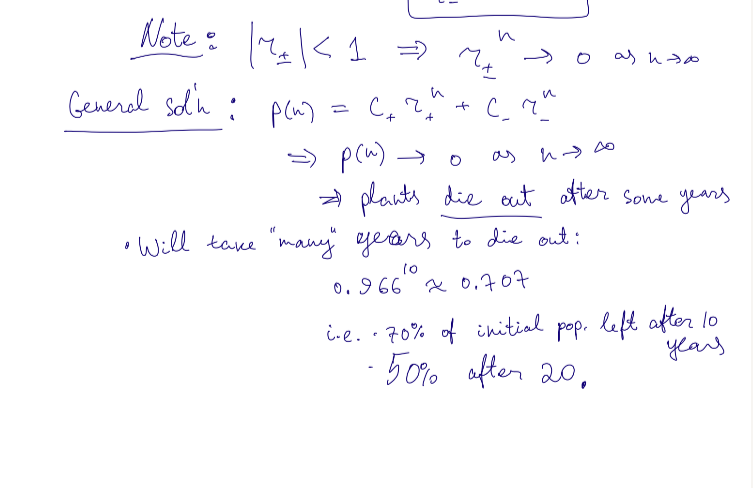 Note: |r±| < 1 ⇒ r±ⁿ → 0 as n→∞
General sol'n: p(n) = C₊ r₊ⁿ + C₋ r₋ⁿ
⇒ p(n) → 0 as n → ∞
⇒ plants die out after some years
• Will take "many" years to die out:
0.966¹⁰ ≈ 0.707
i.e. · 70% of initial pop. left after 10 years
· 50% after 20.